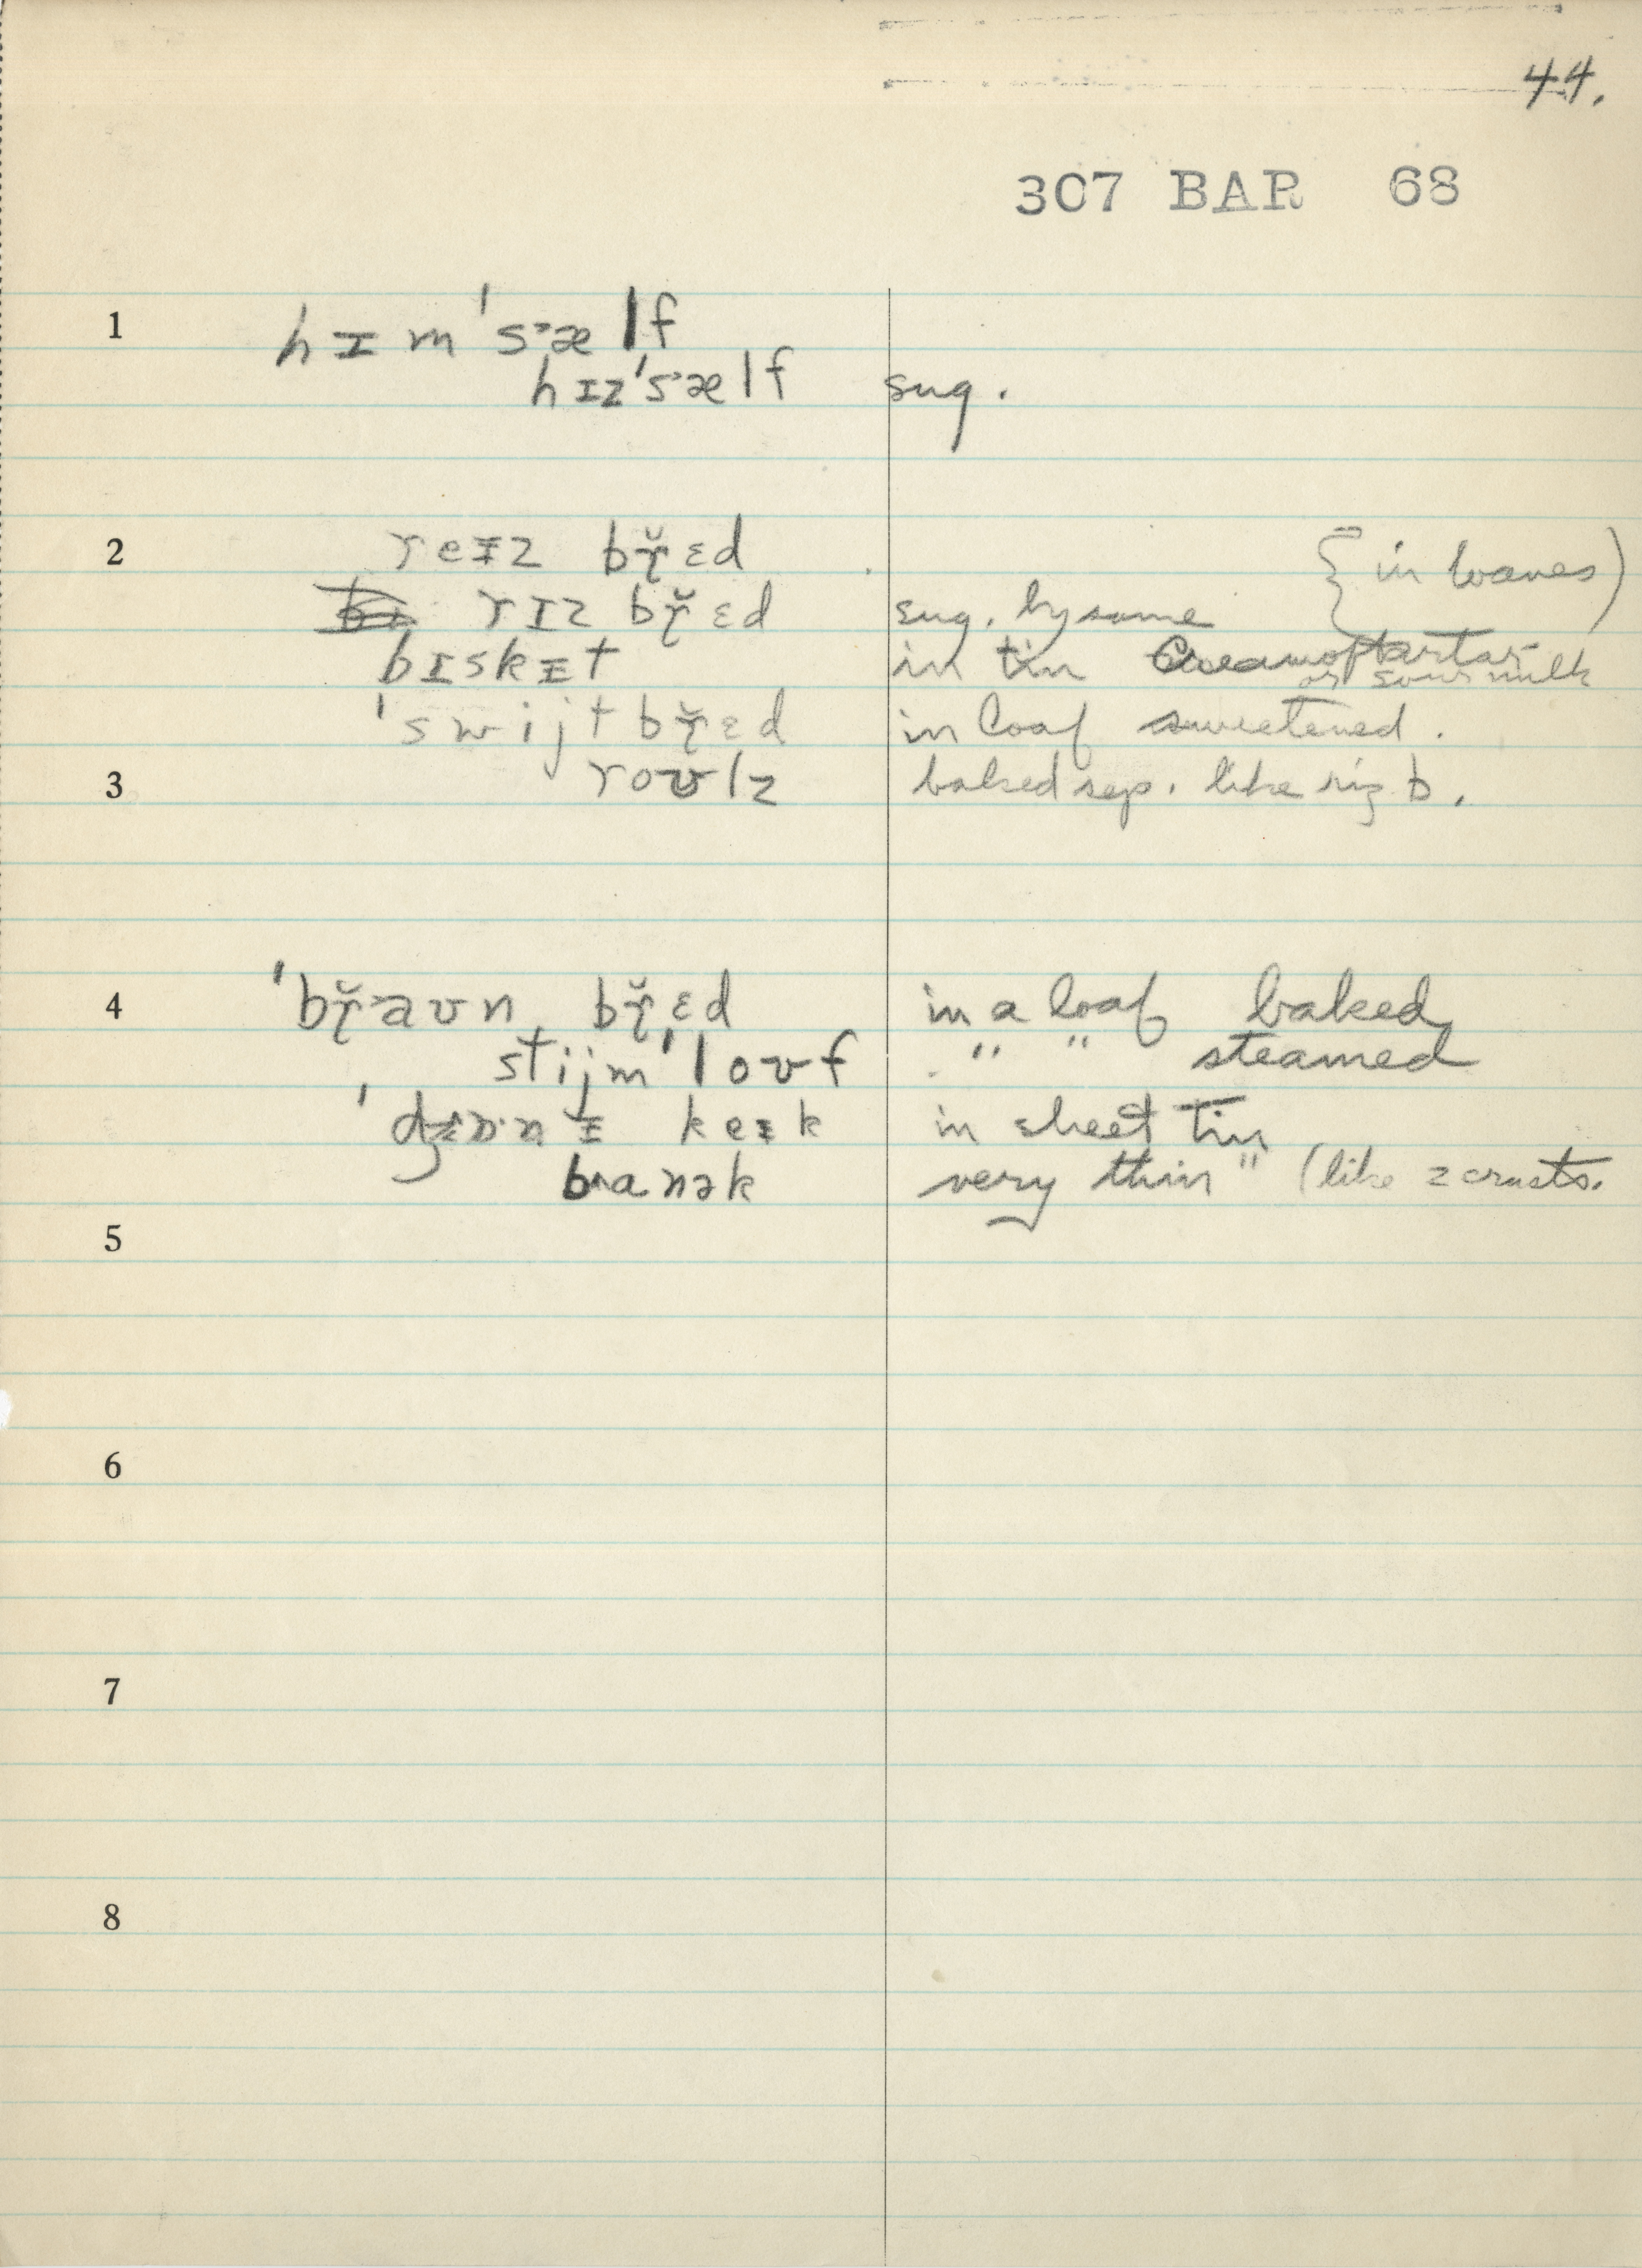 44.
307 BAR 68
1 hɪm'sᵊælf
hɪz'sᵊælf sug.
2 reɪz bɽ̆ɛd { in loaves )
rɪz bɽ̆ɛd sug. by some
bɪskɪt in tin Cream of tartar
or sour milk
'swijt bɽ̆ɛd in loaf sweetened.
3 roʊlz baked sep. like riz b.
4 'bɽ̆aʊn bɽ̆ɛd in a loaf baked
stijm'loʊf " " steamed
keɪk in sheet tin
banək very thin " (like 2 crusts.
5
6
7
8